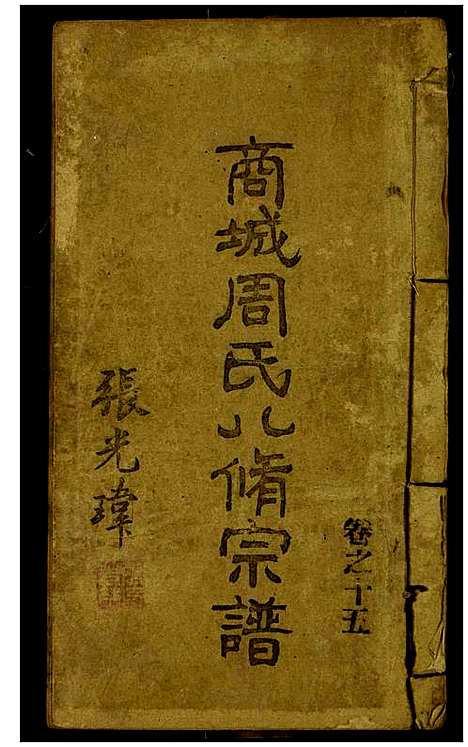 卷之十五
商城周氏八脩宗譜
張光瑋